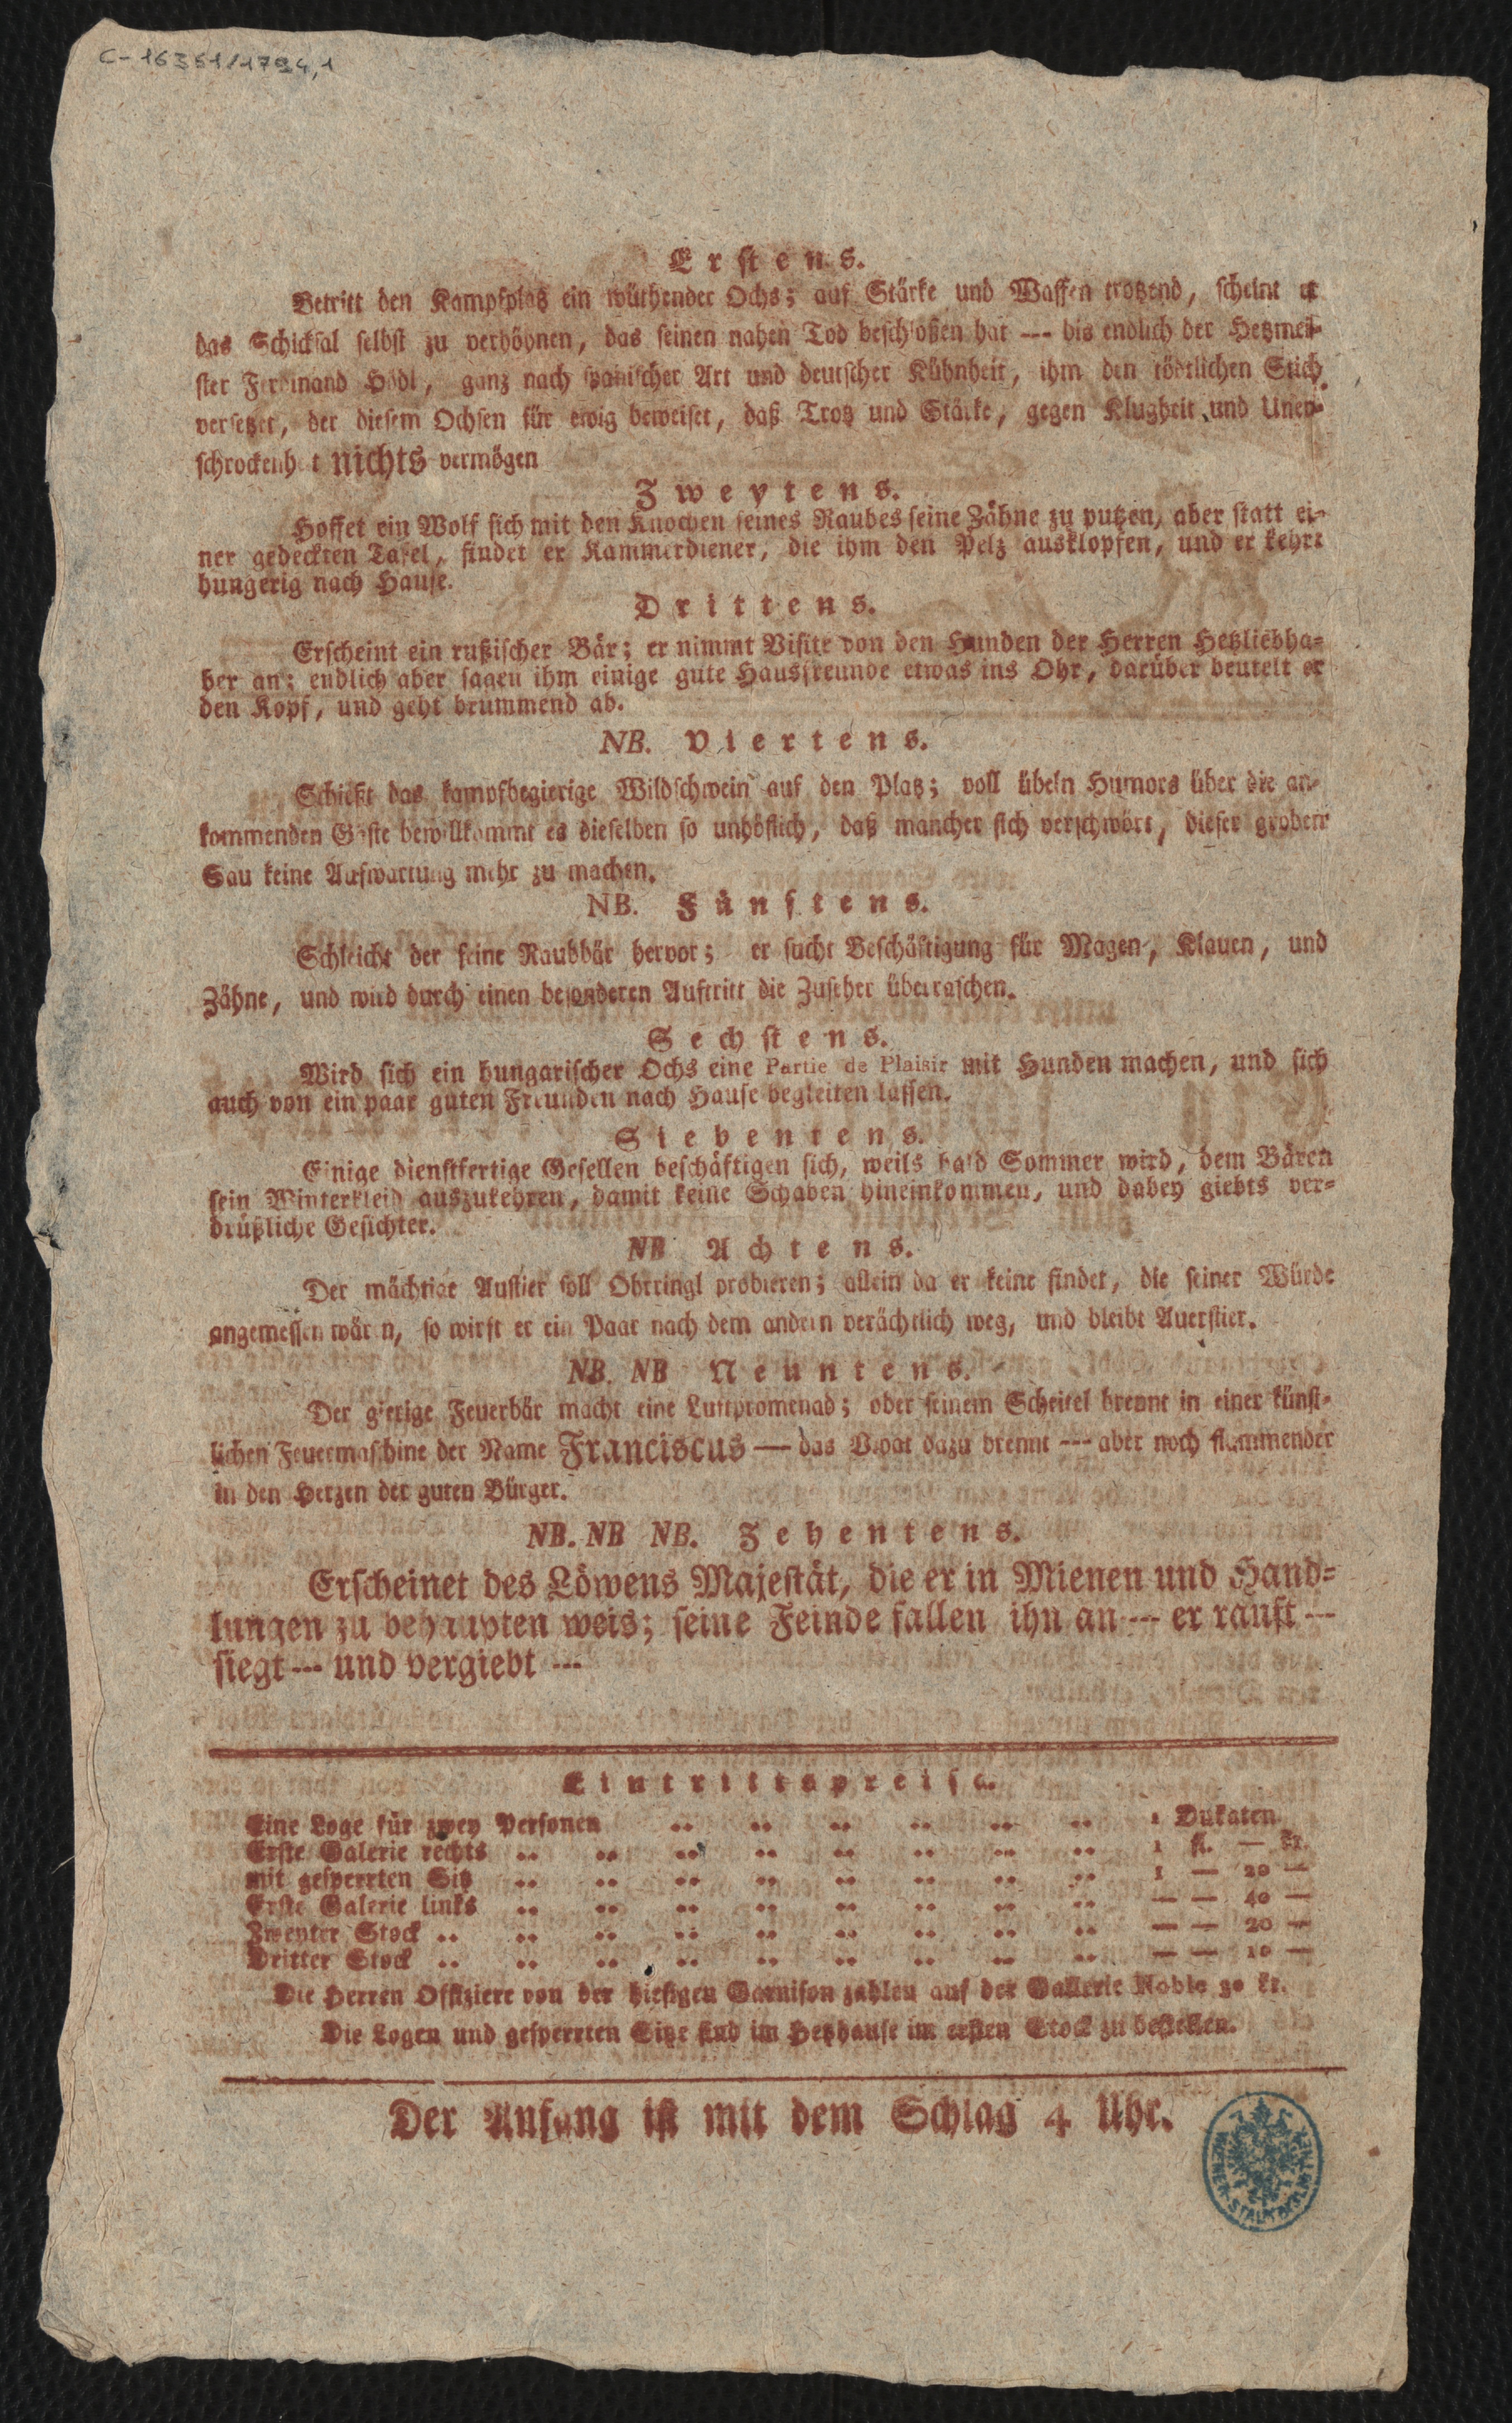 C-16351/1794,1
Erstens.
Betritt den Kampfplatz ein wüthender Ochs; auf Stärke und Waffen trotzend, scheint er
das Schicksal selbst zu verhöhnen, das seinen nahen Tod beschloßen hat --- bis endlich der Hetzmei-
ster Ferdinand Hödl, ganz nach spanischer Art und deutscher Kühnheit, ihm den tödtlichen Stich
versetzet, der diesem Ochsen für ewig beweiset, daß Trotz und Stärke, gegen Klugheit und Uner-
schrockenheit nichts vermögen
Zweytens.
Hoffet ein Wolf sich mit den Knochen seines Raubes seine Zähne zu putzen, aber statt ei-
ner gedeckten Tafel, findet er Kammerdiener, die ihm den Pelz ausklopfen, und er kehrt
hungerig nach Hause.
Drittens.
Erscheint ein rußischer Bär; er nimmt Visite von den Hunden der Herren Hetzliebha-
ber an; endlich aber sagen ihm einige gute Hausfreunde etwas ins Ohr, darüber beutelt er
den Kopf, und geht brummend ab.
NB. Viertens.
Schießt das kampfbegierige Wildschwein auf den Platz; voll übeln Humors über die an-
kommenden Gäste bewillkommt es dieselben so unhöflich, daß mancher sich verschwört, dieser groben
Sau keine Aufwartung mehr zu machen.
NB. Fünftens.
Schleicht der feine Raubbär hervor; er sucht Beschäftigung für Magen, Klauen, und
Zähne, und wird durch einen besonderen Auftritt die Zuseher überraschen.
Sechstens.
Wird sich ein hungarischer Ochs eine Partie de Plaisir mit Hunden machen, und sich
auch von ein paar guten Freunden nach Hause begleiten lassen.
Siebentens.
Einige dienstfertige Gesellen beschäftigen sich, weils bald Sommer wird, dem Bären
sein Winterkleid auszukehren, damit keine Schaben hineinkommen, und dabey giebts ver-
drüßliche Gesichter.
NB Achtens.
Der mächtige Austier soll Ohrringl probieren; allein da er keine findet, die seiner Würde
angemessen wären, so wirft er ein Paar nach dem andern verächtlich weg, und bleibt Auerstier.
NB. NB Neuntens.
Der gierige Feuerbär macht eine Luftpromenad; ober seinem Scheitel brennt in einer künst-
lichen Feuermaschine der Name Franciscus — das Vivat dazu brennt --- aber noch flammender
in den Herzen der guten Bürger.
NB. NB NB. Zehentens.
Erscheinet des Löwens Majestät, die er in Mienen und Hand-
lungen zu behaupten weis; seine Feinde fallen ihn an --- er rauft ---
siegt --- und vergiebt ---
Eintrittspreise.
Eine Loge für zwey Personen .. .. .. .. .. .. 1 Dukaten
Erste Galerie rechts .. .. .. .. .. .. .. .. 1 fl. — kr.
mit gesperrten Sitz .. .. .. .. .. .. .. .. 1 — 20 —
Erste Galerie links .. .. .. .. .. .. .. .. — — 40 —
Zweyter Stock .. .. .. .. .. .. .. .. .. — — 20 —
Dritter Stock .. .. .. .. .. .. .. .. .. — — 10 —
Die Herren Offiziere von der hiesigen Garnison zahlen auf der Gallerie Noble 30 kr.
Die Logen und gesperrten Sitze sind im Hetzhause im ersten Stock zu bestellen.
Der Anfang ist mit dem Schlag 4 Uhr.